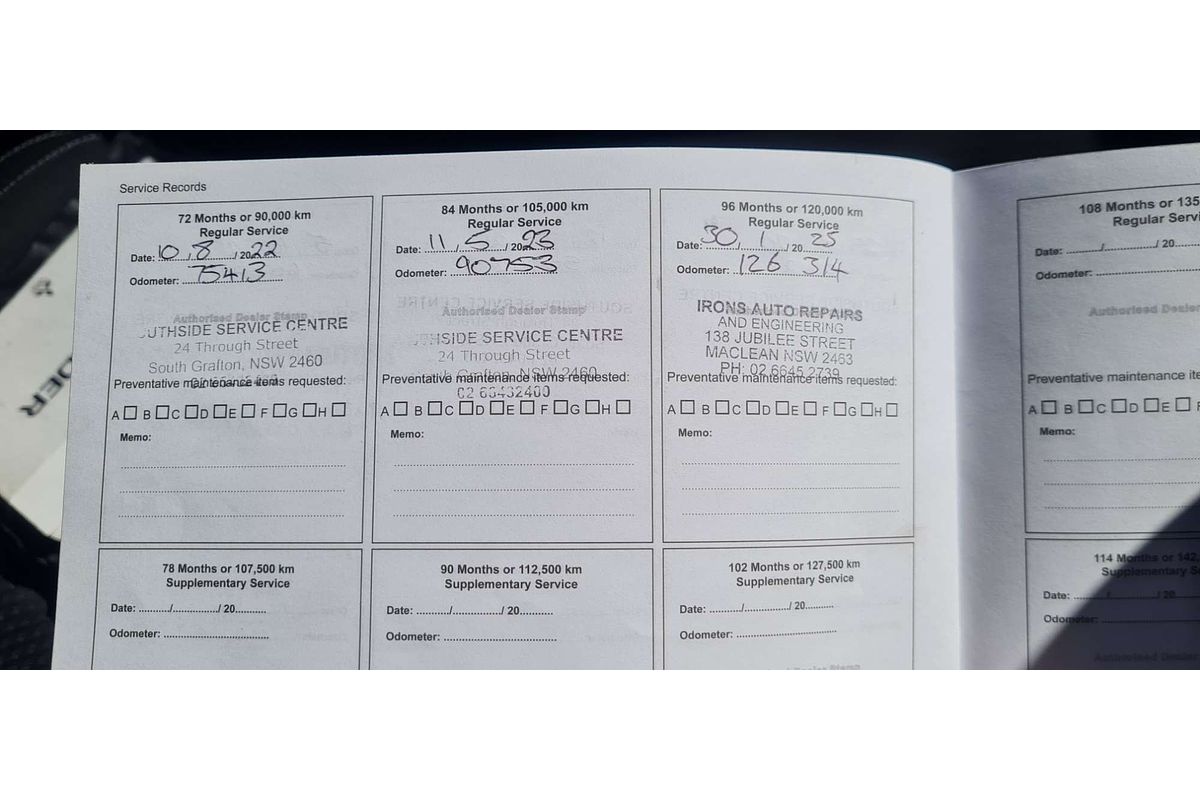 Service Records
72 Months or 90,000 km
Regular Service
Date: 10 / 8 / 2022
Odometer: 75413
Authorised Dealer Stamp
UTHSIDE SERVICE CENTRE
24 Through Street
South Grafton, NSW 2460
Preventative maintenance items requested:
A B C D E F G H
Memo:
84 Months or 105,000 km
Regular Service
Date: 11 / 5 / 2023
Odometer: 90753
Authorised Dealer Stamp
THSIDE SERVICE CENTRE
24 Through Street
Grafton, NSW 2460
Preventative maintenance items requested:
02 66432400
A B C D E F G H
Memo:
96 Months or 120,000 km
Regular Service
Date: 30 / 1 / 20 25
Odometer: 126 314
IRONS AUTO REPAIRS
AND ENGINEERING
138 JUBILEE STREET
MACLEAN NSW 2463
PH: 02 6645 2739
Preventative maintenance items requested:
A B C D E F G H
Memo:
78 Months or 107,500 km
Supplementary Service
Date: ........../................/ 20..........
Odometer: ................................
90 Months or 112,500 km
Supplementary Service
Date: ........../................/ 20..........
Odometer: ................................
102 Months or 127,500 km
Supplementary Service
Date: ........../................/ 20..........
Odometer: ................................
108 Months or 135
Regular Servi
Date: ........../................/ 20
Odometer: ................................
Authorised Deale
Preventative maintenance ite
A B C D E F
Memo:
114 Months or 142
Supplementary S
Date: ........../................/ 20
Odometer: ................................
Authorised Dealer
DER